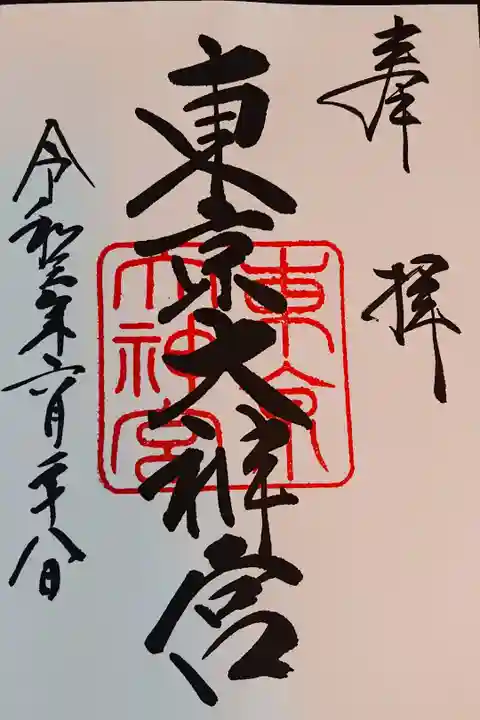 奉拝
東京大神宮
東京大神宮
令和三年六月二十八日